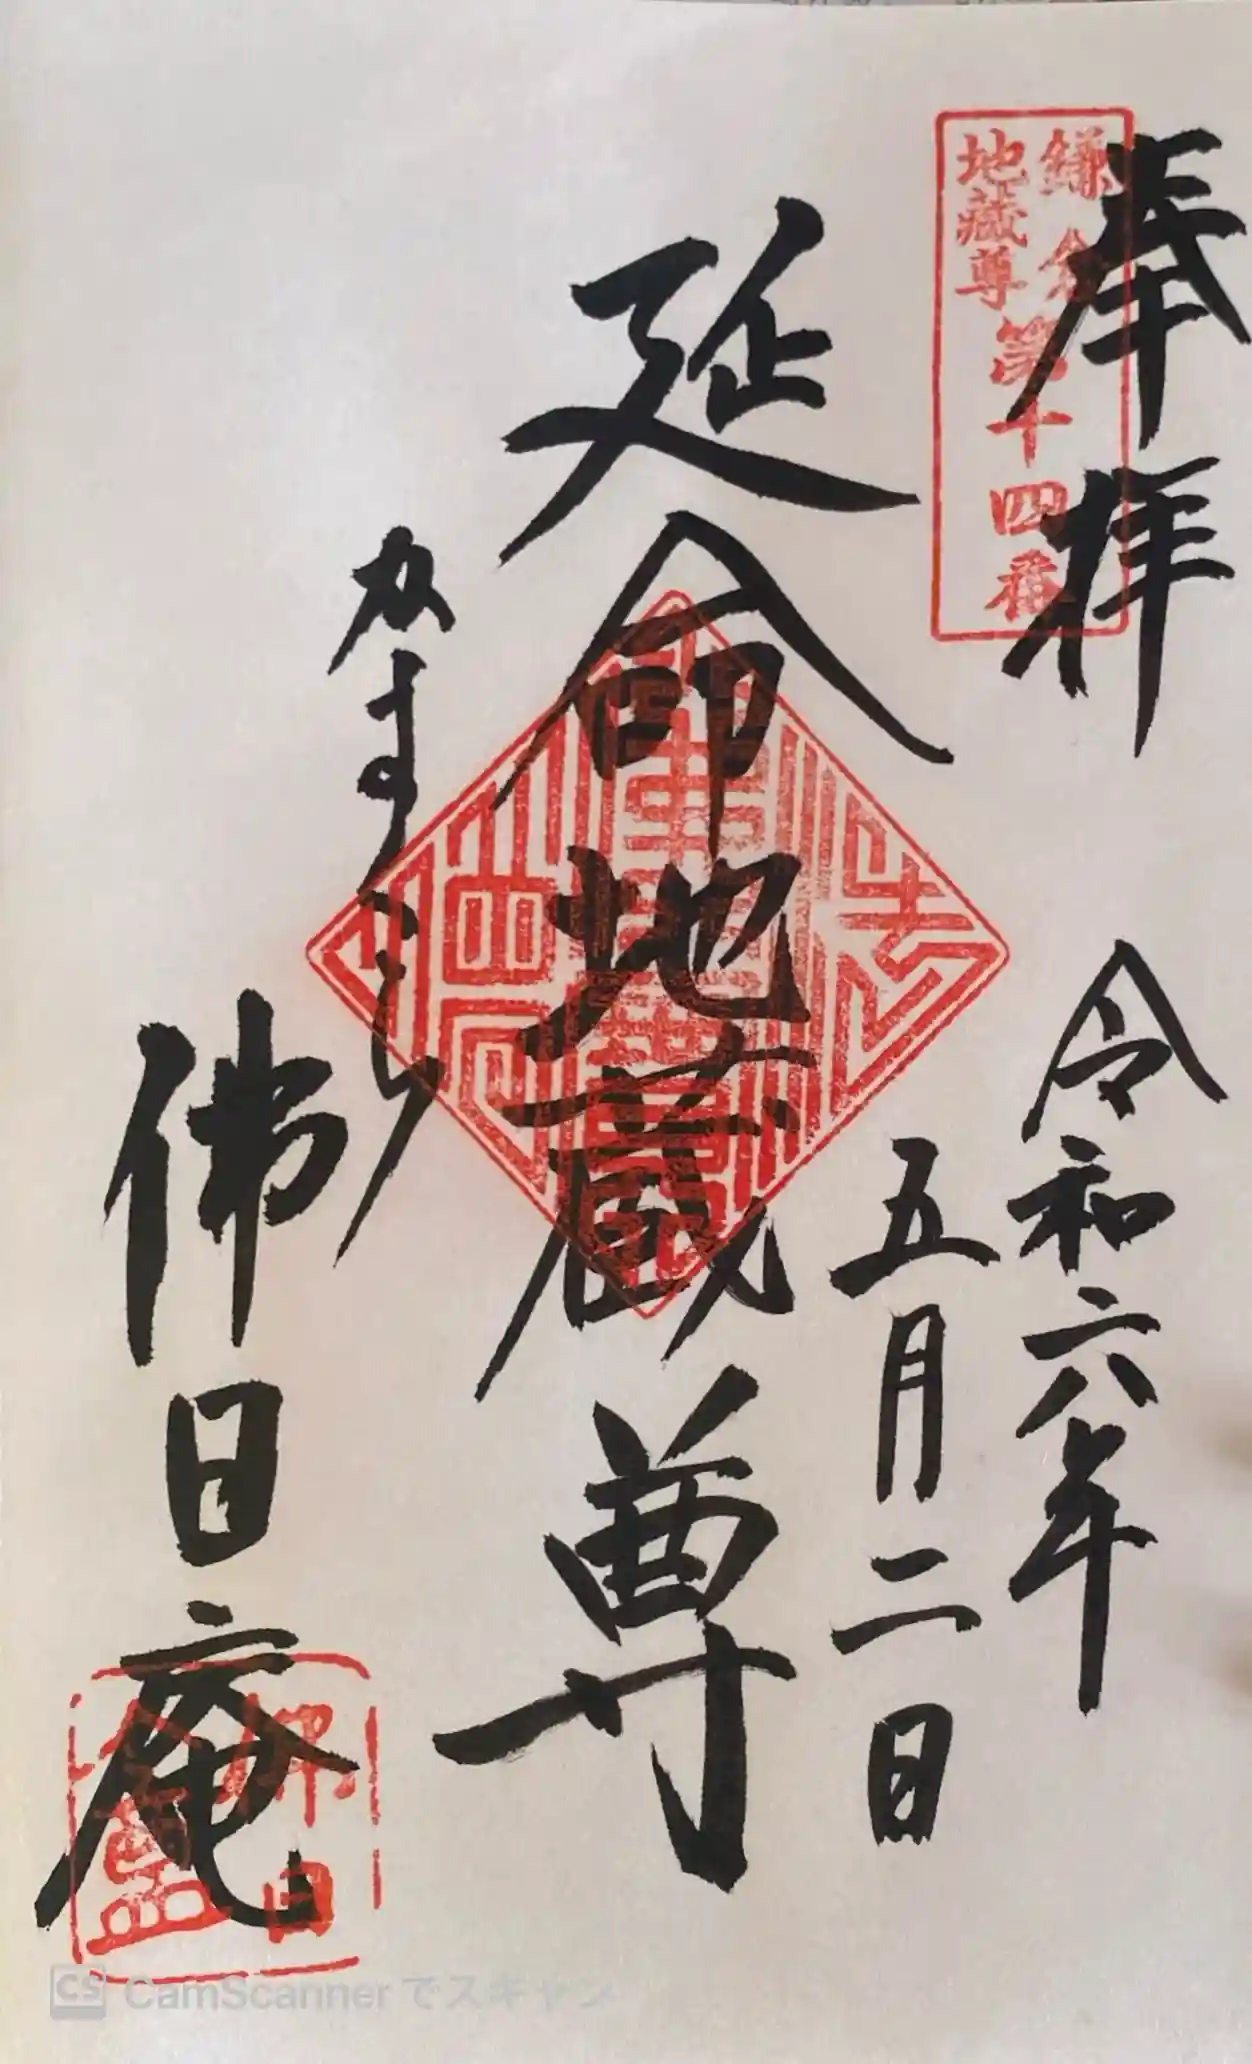 奉拝
鎌倉
地蔵尊
第十四番
令和六年
五月二日
延命地蔵尊
かまくら
佛日庵
佛日
CamScannerでスキャン